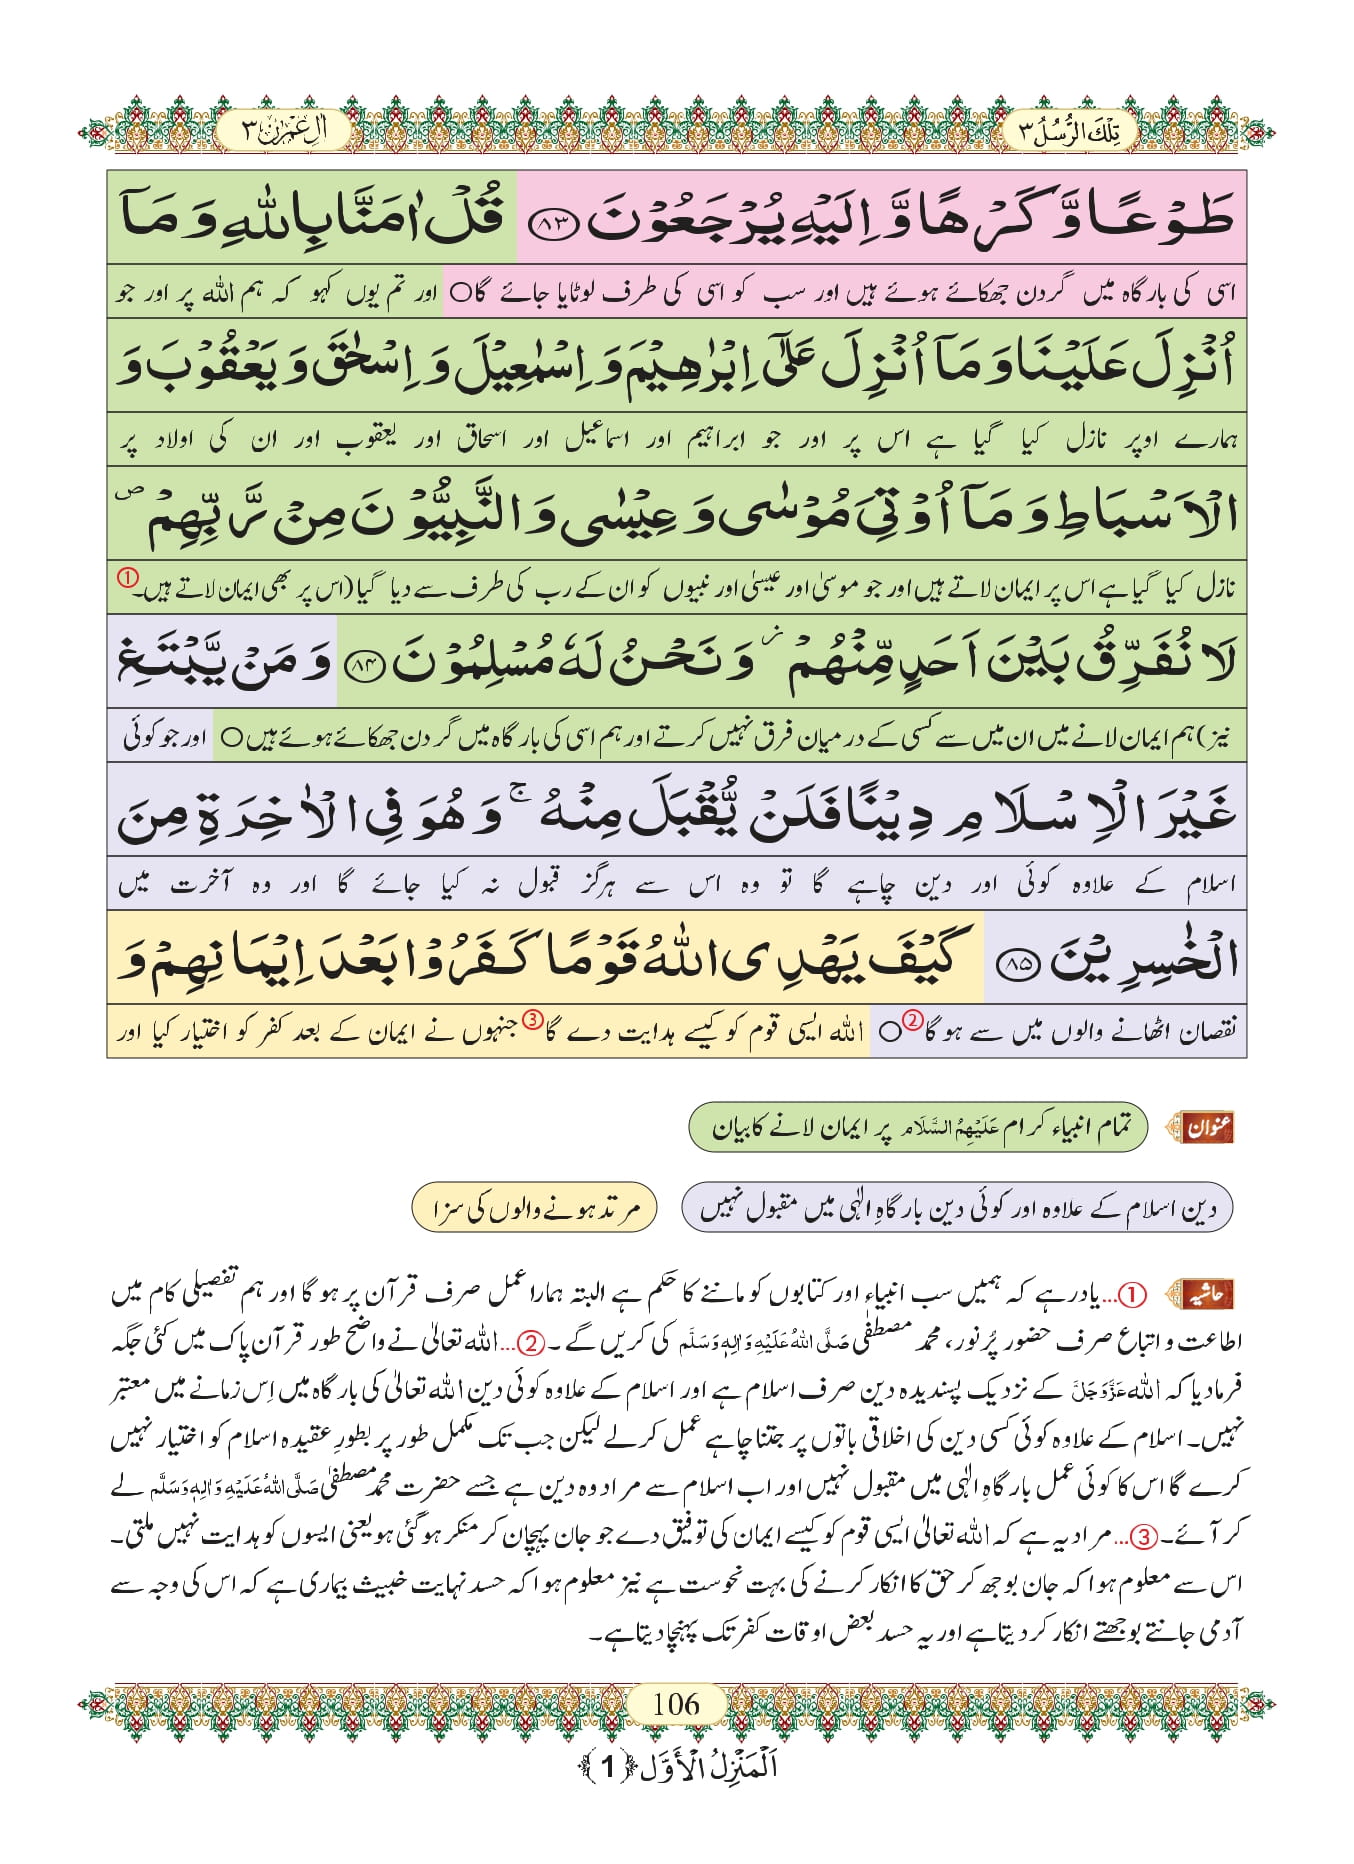 تِلْكَ الرُّسُلُ ٣
اٰلِ عِمْرٰن ٣
طَوْعًا وَّ كَرْهًا وَّ اِلَیْهِ یُرْجَعُوْنَ ﴿۸۳﴾ قُلْ اٰمَنَّا بِاللّٰهِ وَ مَاۤ
اسی کی بارگاہ میں گردن جھکائے ہوئے ہیں اور سب کو اسی کی طرف لوٹایا جائے گا○ اور تم یوں کہو کہ ہم اللہ پر اور جو
اُنْزِلَ عَلَیْنَا وَ مَاۤ اُنْزِلَ عَلٰۤی اِبْرٰهِیْمَ وَ اِسْمٰعِیْلَ وَ اِسْحٰقَ وَ یَعْقُوْبَ وَ
ہمارے اوپر نازل کیا گیا ہے اس پر اور جو ابراہیم اور اسماعیل اور اسحاق اور یعقوب اور ان کی اولاد پر
الْاَسْبَاطِ وَ مَاۤ اُوْتِیَ مُوْسٰی وَ عِیْسٰی وَ النَّبِیُّوْنَ مِنْ رَّبِّهِمْ ۪
نازل کیا گیا ہے اس پر ایمان لاتے ہیں اور جو موسیٰ اور عیسیٰ اور نبیوں کو ان کے رب کی طرف سے دیا گیا (اس پر بھی ایمان لاتے ہیں۔①
لَا نُفَرِّقُ بَیْنَ اَحَدٍ مِّنْهُمْ ؗ وَ نَحْنُ لَهٗ مُسْلِمُوْنَ ﴿۸۴﴾ وَ مَنْ یَّبْتَغِ
نیز) ہم ایمان لانے میں ان میں سے کسی کے درمیان فرق نہیں کرتے اور ہم اسی کی بارگاہ میں گردن جھکائے ہوئے ہیں○ اور جو کوئی
غَیْرَ الْاِسْلَامِ دِیْنًا فَلَنْ یُّقْبَلَ مِنْهُ ۚ وَ هُوَ فِی الْاٰخِرَةِ مِنَ
اسلام کے علاوہ کوئی اور دین چاہے گا تو وہ اس سے ہرگز قبول نہ کیا جائے گا اور وہ آخرت میں
الْخٰسِرِیْنَ ﴿۸۵﴾ كَیْفَ یَهْدِی اللّٰهُ قَوْمًا كَفَرُوْا بَعْدَ اِیْمَانِهِمْ وَ
نقصان اٹھانے والوں میں سے ہوگا②○ اللہ ایسی قوم کو کیسے ہدایت دے گا③ جنہوں نے ایمان کے بعد کفر کو اختیار کیا اور
عنوان تمام انبیاء کرام عَلَیْهِمُ السَّلَام پر ایمان لانے کا بیان
دین اسلام کے علاوہ اور کوئی دین بارگاہِ الٰہی میں مقبول نہیں مرتد ہونے والوں کی سزا
حاشیہ ①...یاد رہے کہ ہمیں سب انبیاء اور کتابوں کو ماننے کا حکم ہے البتہ ہمارا عمل صرف قرآن پر ہوگا اور ہم تفصیلی کام میں
اطاعت و اتباع صرف حضور پُرنور، محمد مصطفی صَلَّی اللهُ عَلَیْهِ وَاٰلِهٖ وَسَلَّم کی کریں گے۔ ②...اللہ تعالیٰ نے واضح طور قرآن پاک میں کئی جگہ
فرمادیا کہ اللہ عَزَّوَجَلَّ کے نزدیک پسندیدہ دین صرف اسلام ہے اور اسلام کے علاوہ کوئی دین اللہ تعالیٰ کی بارگاہ میں اِس زمانے میں معتبر
نہیں۔ اسلام کے علاوہ کوئی کسی دین کی اخلاقی باتوں پر جتنا چاہے عمل کرلے لیکن جب تک مکمل طور پر بطورِ عقیدہ اسلام کو اختیار نہیں
کرے گا اس کا کوئی عمل بارگاہِ الٰہی میں مقبول نہیں اور اب اسلام سے مراد وہ دین ہے جسے حضرت محمد مصطفیٰ صَلَّی اللهُ عَلَیْهِ وَاٰلِهٖ وَسَلَّم لے
کر آئے۔ ③...مراد یہ ہے کہ اللہ تعالیٰ ایسی قوم کو کیسے ایمان کی توفیق دے جو جان پہچان کر منکر ہوگئی ہو یعنی ایسوں کو ہدایت نہیں ملتی۔
اس سے معلوم ہوا کہ جان بوجھ کر حق کا انکار کرنے کی بہت نحوست ہے نیز معلوم ہوا کہ حسد نہایت خبیث بیماری ہے کہ اس کی وجہ سے
آدمی جانتے بوجھتے انکار کردیتا ہے اور یہ حسد بعض اوقات کفر تک پہنچا دیتا ہے۔
106
اَلْمَنْزِلُ الْاَوَّل ﴿1﴾